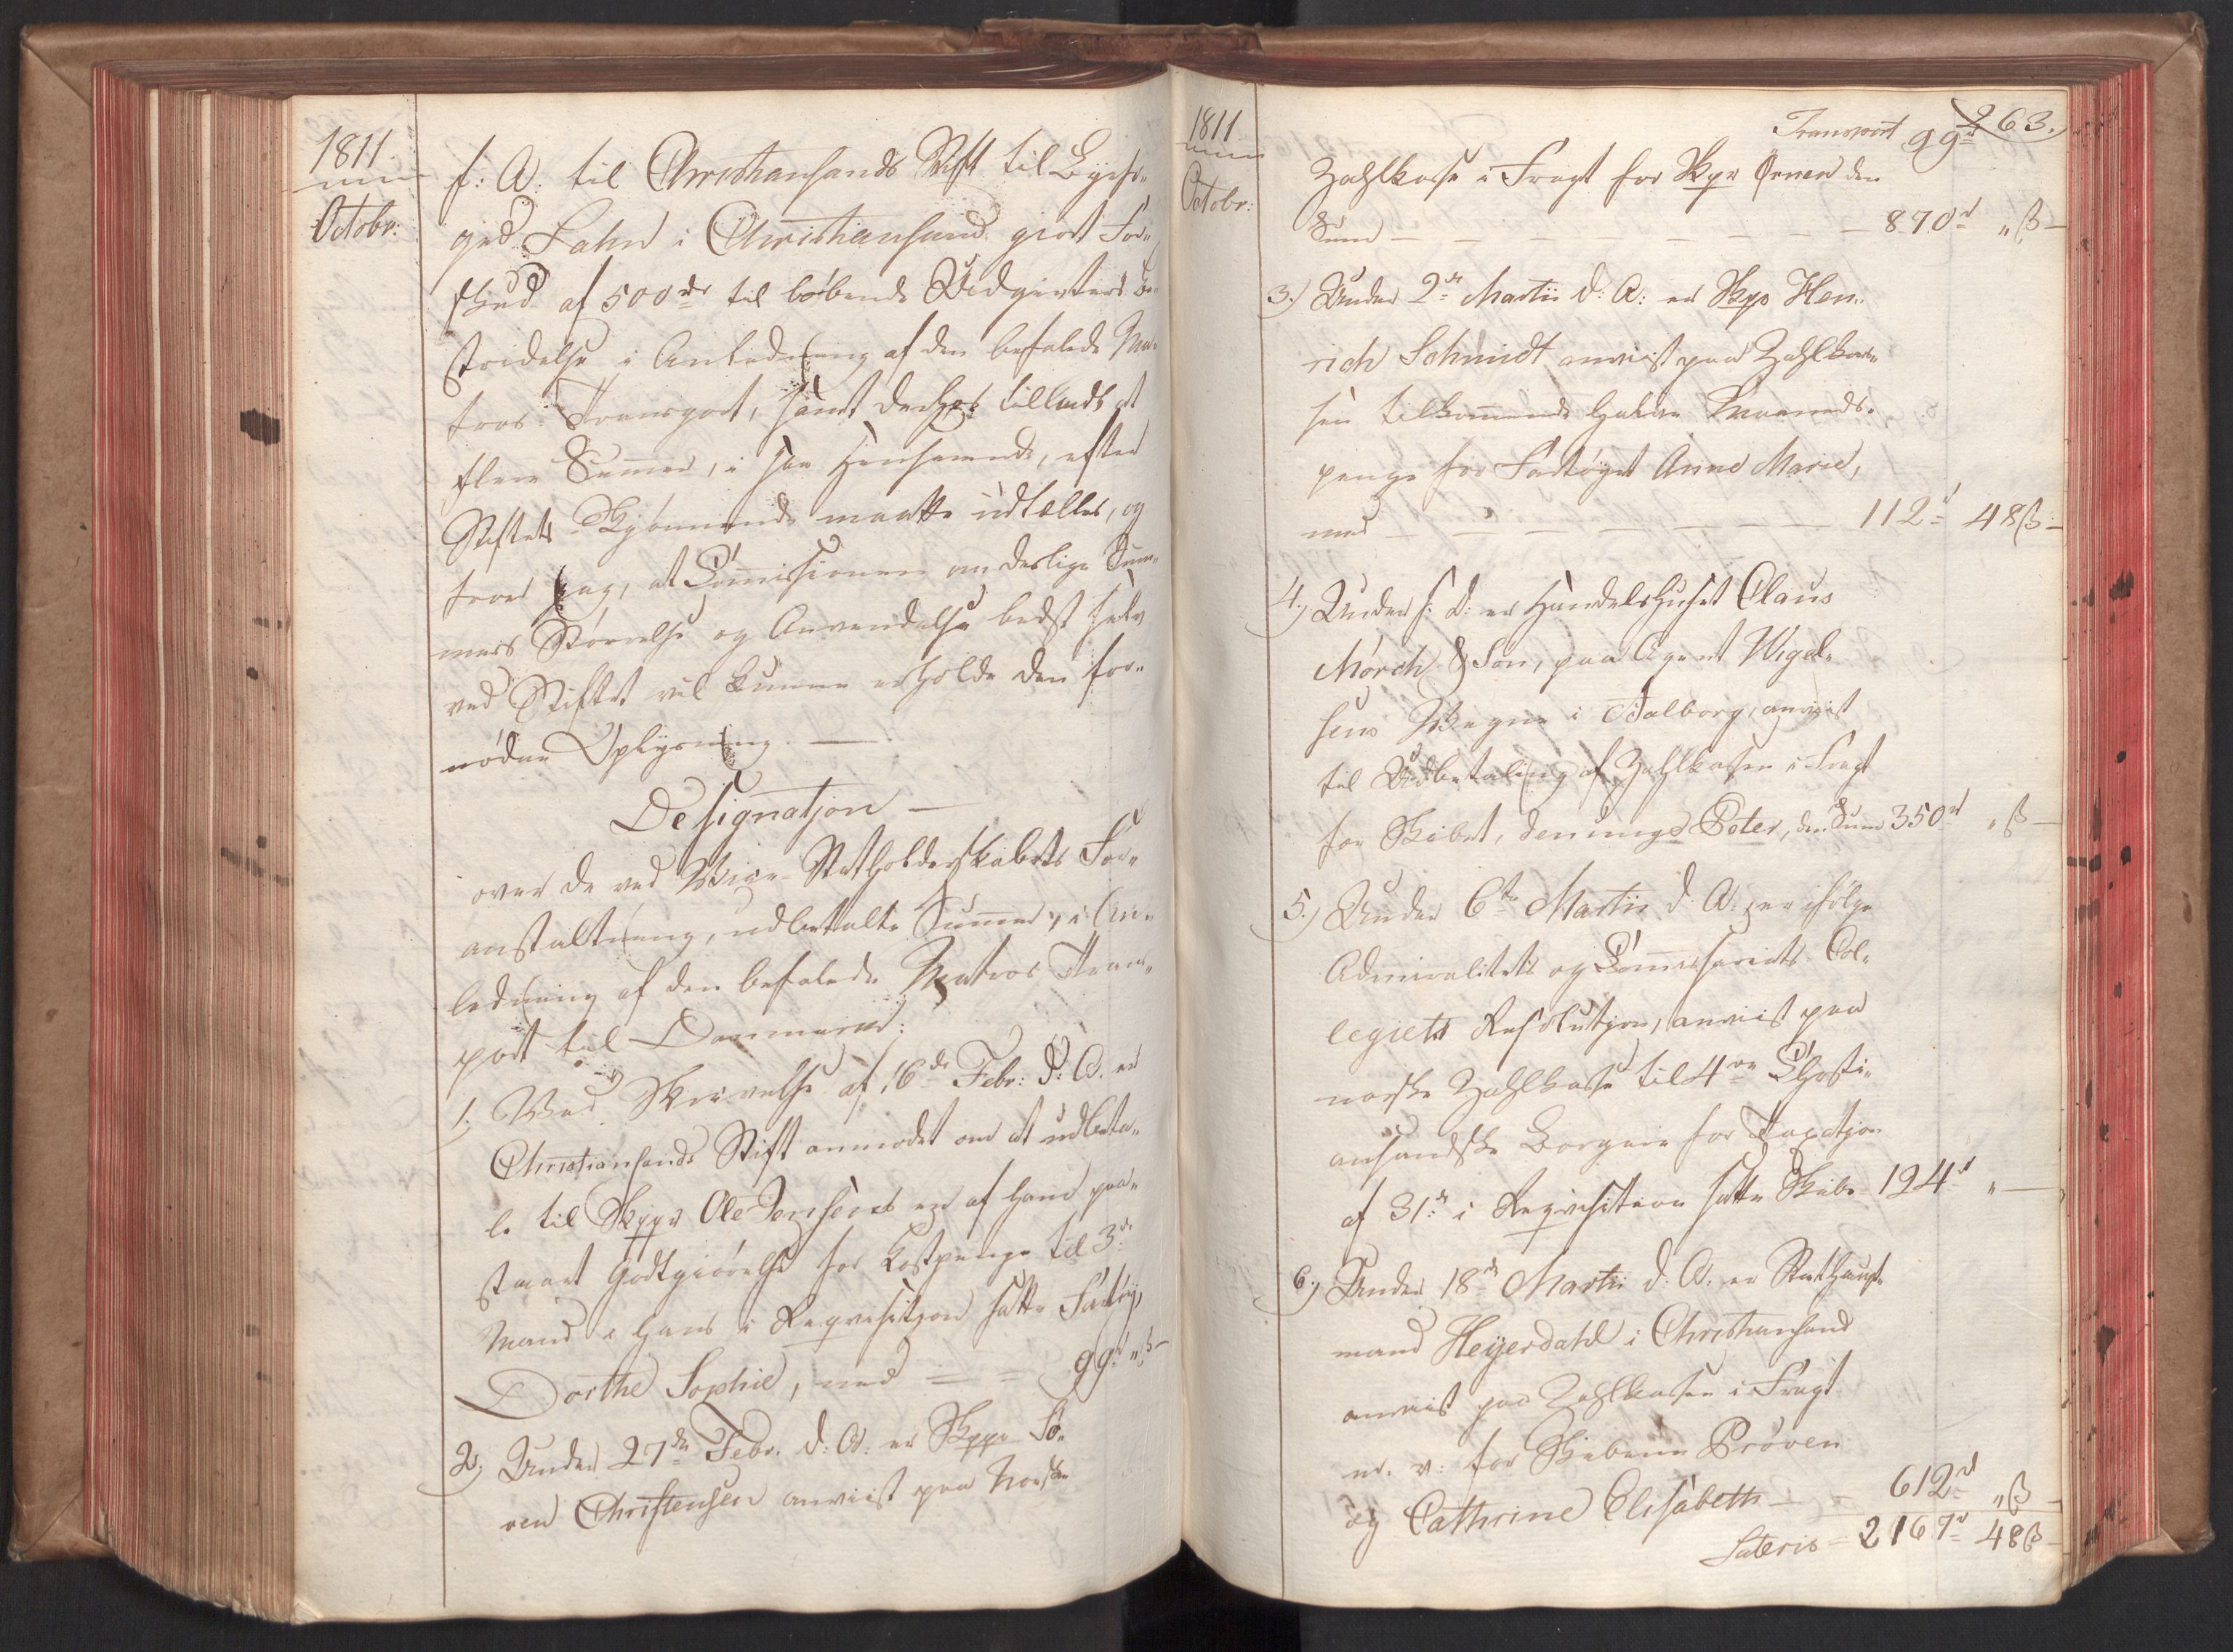 1811.
Octobr:
f: A: til Christiansands Stift til Byfo-
ged Lahn i Christiansand giort For-
skud af 500 rdr til løbende Udgivters Be-
stridelse i Anledning af den befalede Ma-
tros Transport, samt derhos tilladt at
flere Summer, i saa Henseende, efter
Stiftets Skjønnende maatte udtælles, og
troer jeg, at Commissionen om deslige Sum-
mers Størrelse og Anvendelse bedst selv
ved Stiftet vil kunne erholde den for-
nødne Oplysning. —
Designatjon —
over de ved Vice-Statholderskabets For-
anstaltning, udbetalte Summer, i An-
ledning af den befalede Matros Trans-
port til Danmark:
1.) Ved Skrivelse af 16de Febr: d: A: er
Christiansands Stift anmodet om at udbeta-
le til Skppr Ole Jensen en af ham paa-
staaet Godtgiørelse for Kostpenge til 3de
Mand i hans i Reqvisitjon satte Fartøy,
Dorthe Sophie, med — — 99rd „ß —
2.) Under 27de Febr. d: A: er Skppr Sø-
ren Christensen anviist paa Norske
1811
Octobr:
263.
Transport 99rd
Zahlkasse i Fragt for Skpr Ørnen den
Sum — — — — — — — — 870rd „ß —
3.) Under 2de Martii d: A: er Skpr Hen-
rich Schmidt anviist paa Zahlkas-
sen tilkommende halve Maaneds-
penge for Fartøyet Anne Marie,
med — — — — — — — 112rd 48ß —
4.) Under s: D: er Handelshuset Claus
Mörch & Søn, paa Agent Wigel-
sens Vegne i Aalborg, anviist
til Udbetaling af Zahlkassen i Fragt
for Skibet, den unge Peter, den Sum 350rd „ß —
5.) Under 6te Martii d: A: er ifølge
Admiralitets og Commissariats-Col-
legiets Resolutjon, anviist paa
norske Zahlkasse til 4re Christi-
ansandske Borgere for Taxatjon
af 31te i Reqvisition satte Skibe 124rd „ —
6.) Under 18de Martii d: A: er Stadthaupt-
mand Heyerdahl i Christiansand
anviist paa Zahlkassen i Fragt
m. v: for Skibene Prøven
og Cathrine Elisabeth — — 612rd „ß —
Lateris — 2167rd 48ß —